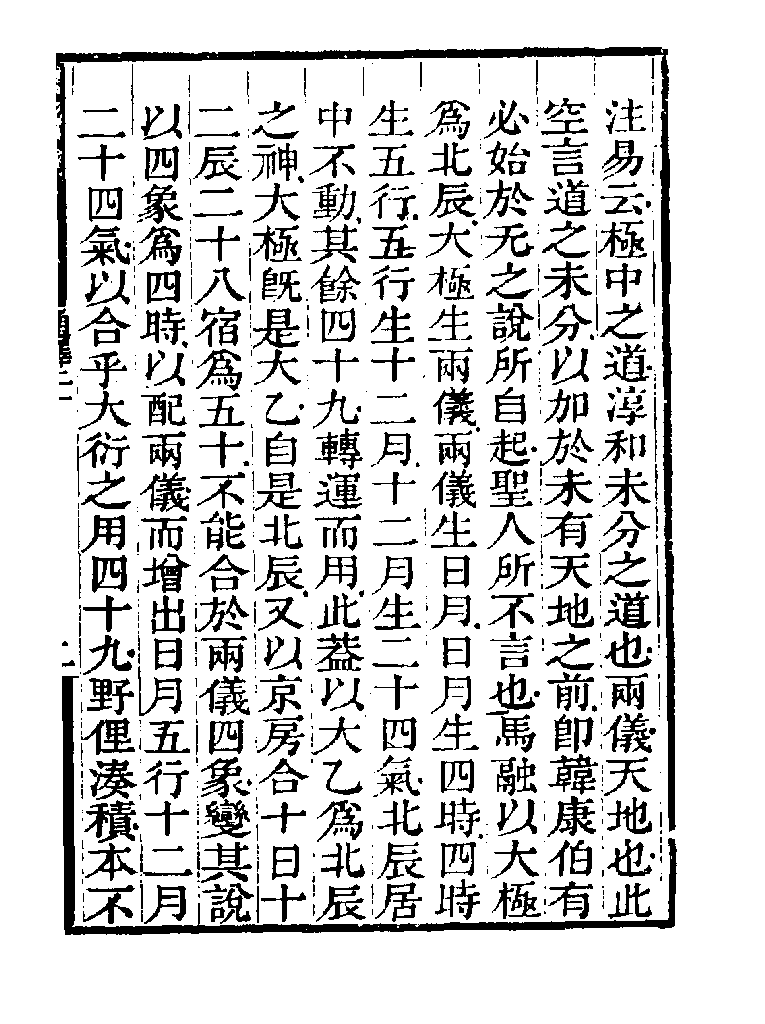 注易云極中之道淳和未分之道也兩儀天地也此
空言道之未分以加於未有天地之前卽韓康伯有
必始於无之說所自起聖人所不言也馬融以大極
爲北辰大極生兩儀兩儀生日月日月生四時四時
生五行五行生十二月十二月生二十四氣北辰居
中不動其餘四十九轉運而用此葢以大乙爲北辰
之神大極旣是大乙自是北辰又以京房合十日十
二辰二十八宿爲五十不能合於兩儀四象變其說
以四象爲四時以配兩儀而增出日月五行十二月
二十四氣以合乎大衍之用四十九野俚湊積本不